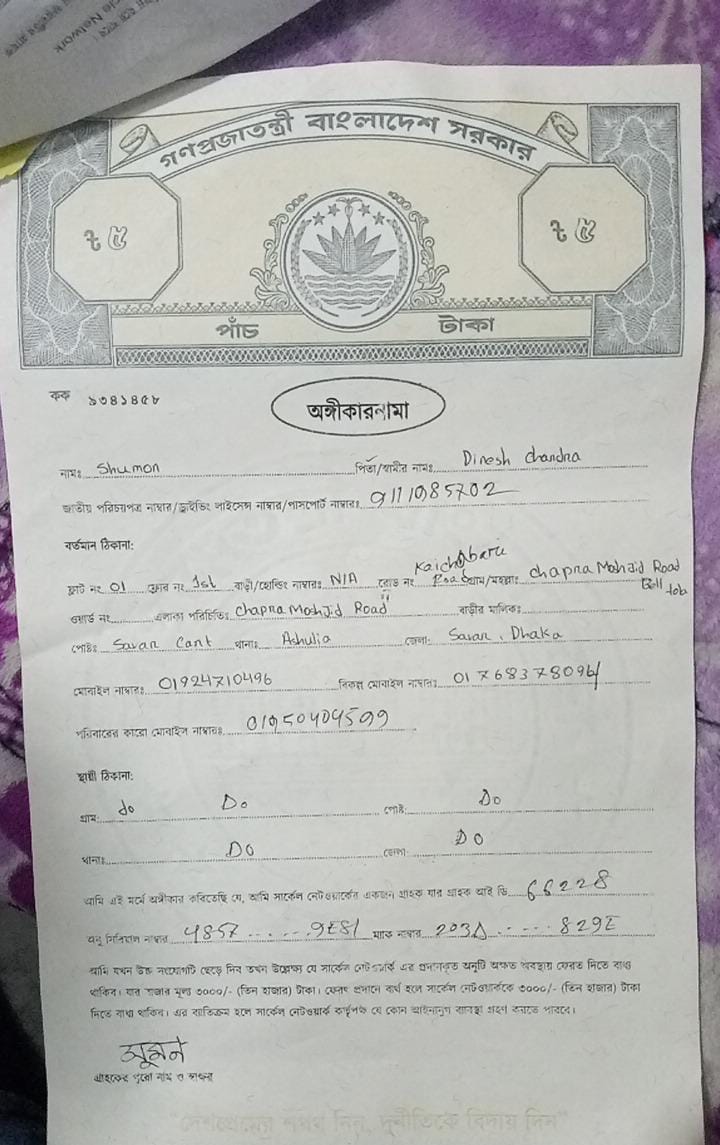 cle Network
গণপ্রজাতন্ত্রী বাংলাদেশ সরকার
৳ ৫ ৳ ৫
পাঁচ টাকা
কক ১৩৪১৪৫৮
অঙ্গীকারনামা
নামঃ Shumon পিতা/স্বামীর নামঃ Dinesh chandra
জাতীয় পরিচয়পত্র নাম্বার/ড্রাইভিং লাইসেন্স নাম্বার/পাসপোর্ট নাম্বারঃ 9111985702
বর্তমান ঠিকানা:
ফ্লাট নং 01 ফ্লোর নং 1st বাড়ী/হোল্ডিং নাম্বারঃ N/A রোড নং Kaichabari Road গ্রাম/মহল্লাঃ chapra Moshjid Road Bell tob
ওয়ার্ড নং এলাকা পরিচিতিঃ Chapra Moshjid Road বাড়ীর মালিকঃ
পোষ্টঃ Savar Cant থানাঃ Ashulia জেলা: Savar, Dhaka
মোবাইল নাম্বারঃ 01924710496 বিকল্প মোবাইল নাম্বারঃ 01768378096
পরিবারের কারো মোবাইল নাম্বারঃ 01950404599
স্থায়ী ঠিকানা:
গ্রাম: do Do পোষ্ট: Do
থানাঃ DO জেলা: DO
আমি এই মর্মে অঙ্গীকার করিতেছি যে, আমি সার্কেল নেটওয়ার্কের একজন গ্রাহক যার গ্রাহক আই ডি 66228
অনু সিরিয়াল নাম্বার 4857.......9E81 ম্যাক নাম্বার 203A.....829E
আমি যখন উক্ত সংযোগটি ছেড়ে দিব তখন উল্লেক্ষ্য যে সার্কেল নেটওয়ার্ক এর প্রদানকৃত অনুটি অক্ষত অবস্থায় ফেরত দিতে বাধ্য
থাকিব। যার বাজার মূল্য ৩০০০/- (তিন হাজার) টাকা। ফেরৎ প্রদানে ব্যর্থ হলে সার্কেল নেটওয়ার্ককে ৩০০০/- (তিন হাজার) টাকা
দিতে বাধ্য থাকিব। এর ব্যতিক্রম হলে সার্কেল নেটওয়ার্ক কর্তৃপক্ষ যে কোন আইনানুগ ব্যবস্থা গ্রহণ করতে পারবে।
সুমন
গ্রাহকের পুরো নাম ও স্বাক্ষর
"দেশপ্রেমের শপথ নিন, দুর্নীতিকে বিদায় দিন"